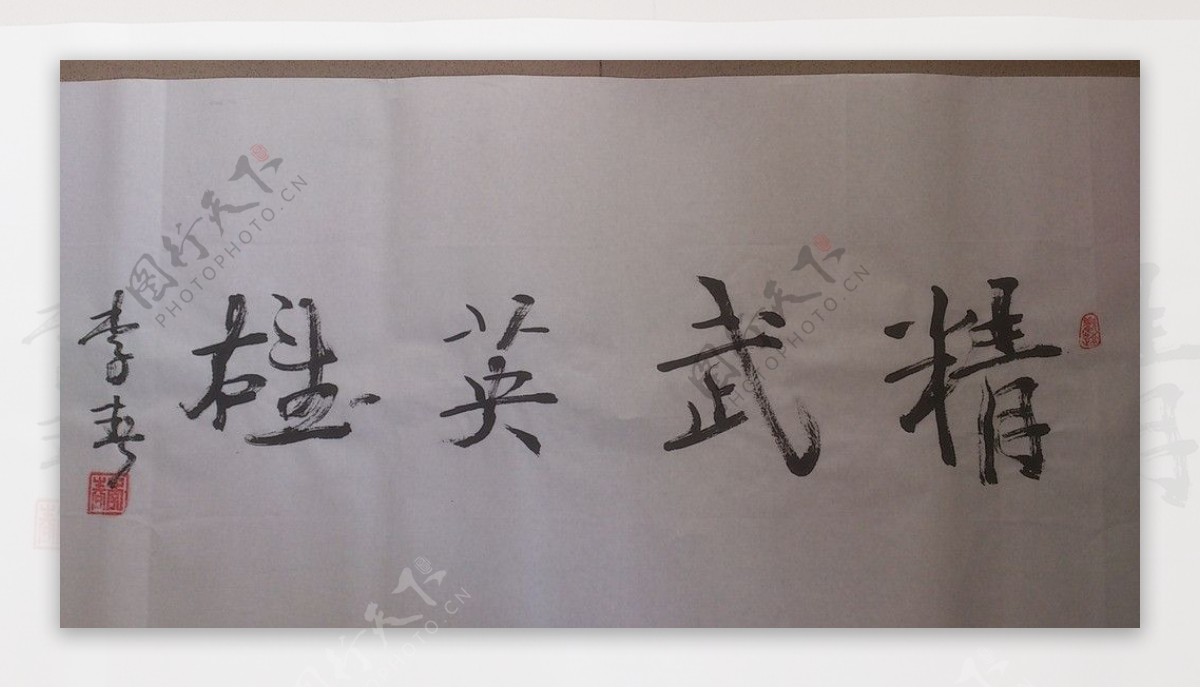 精武英雄
李春
图行天下
PHOTOPHOTO.CN
图行天下
PHOTOPHOTO.CN
图行天下
PHOTOPHOTO.CN